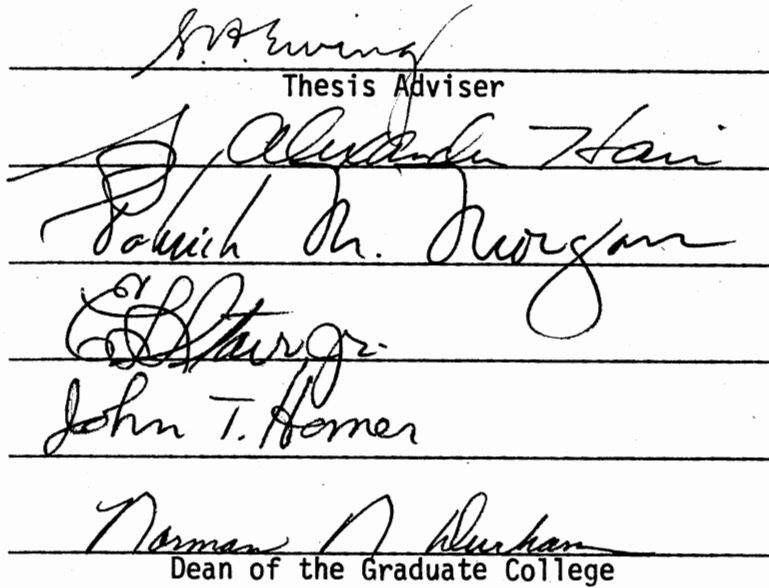 S.A. Ewing
Thesis Adviser
J. Alexander Hair
Patrick M. Morgan
E L Stair Jr.
John T. Homer
Norman N Durham
Dean of the Graduate College